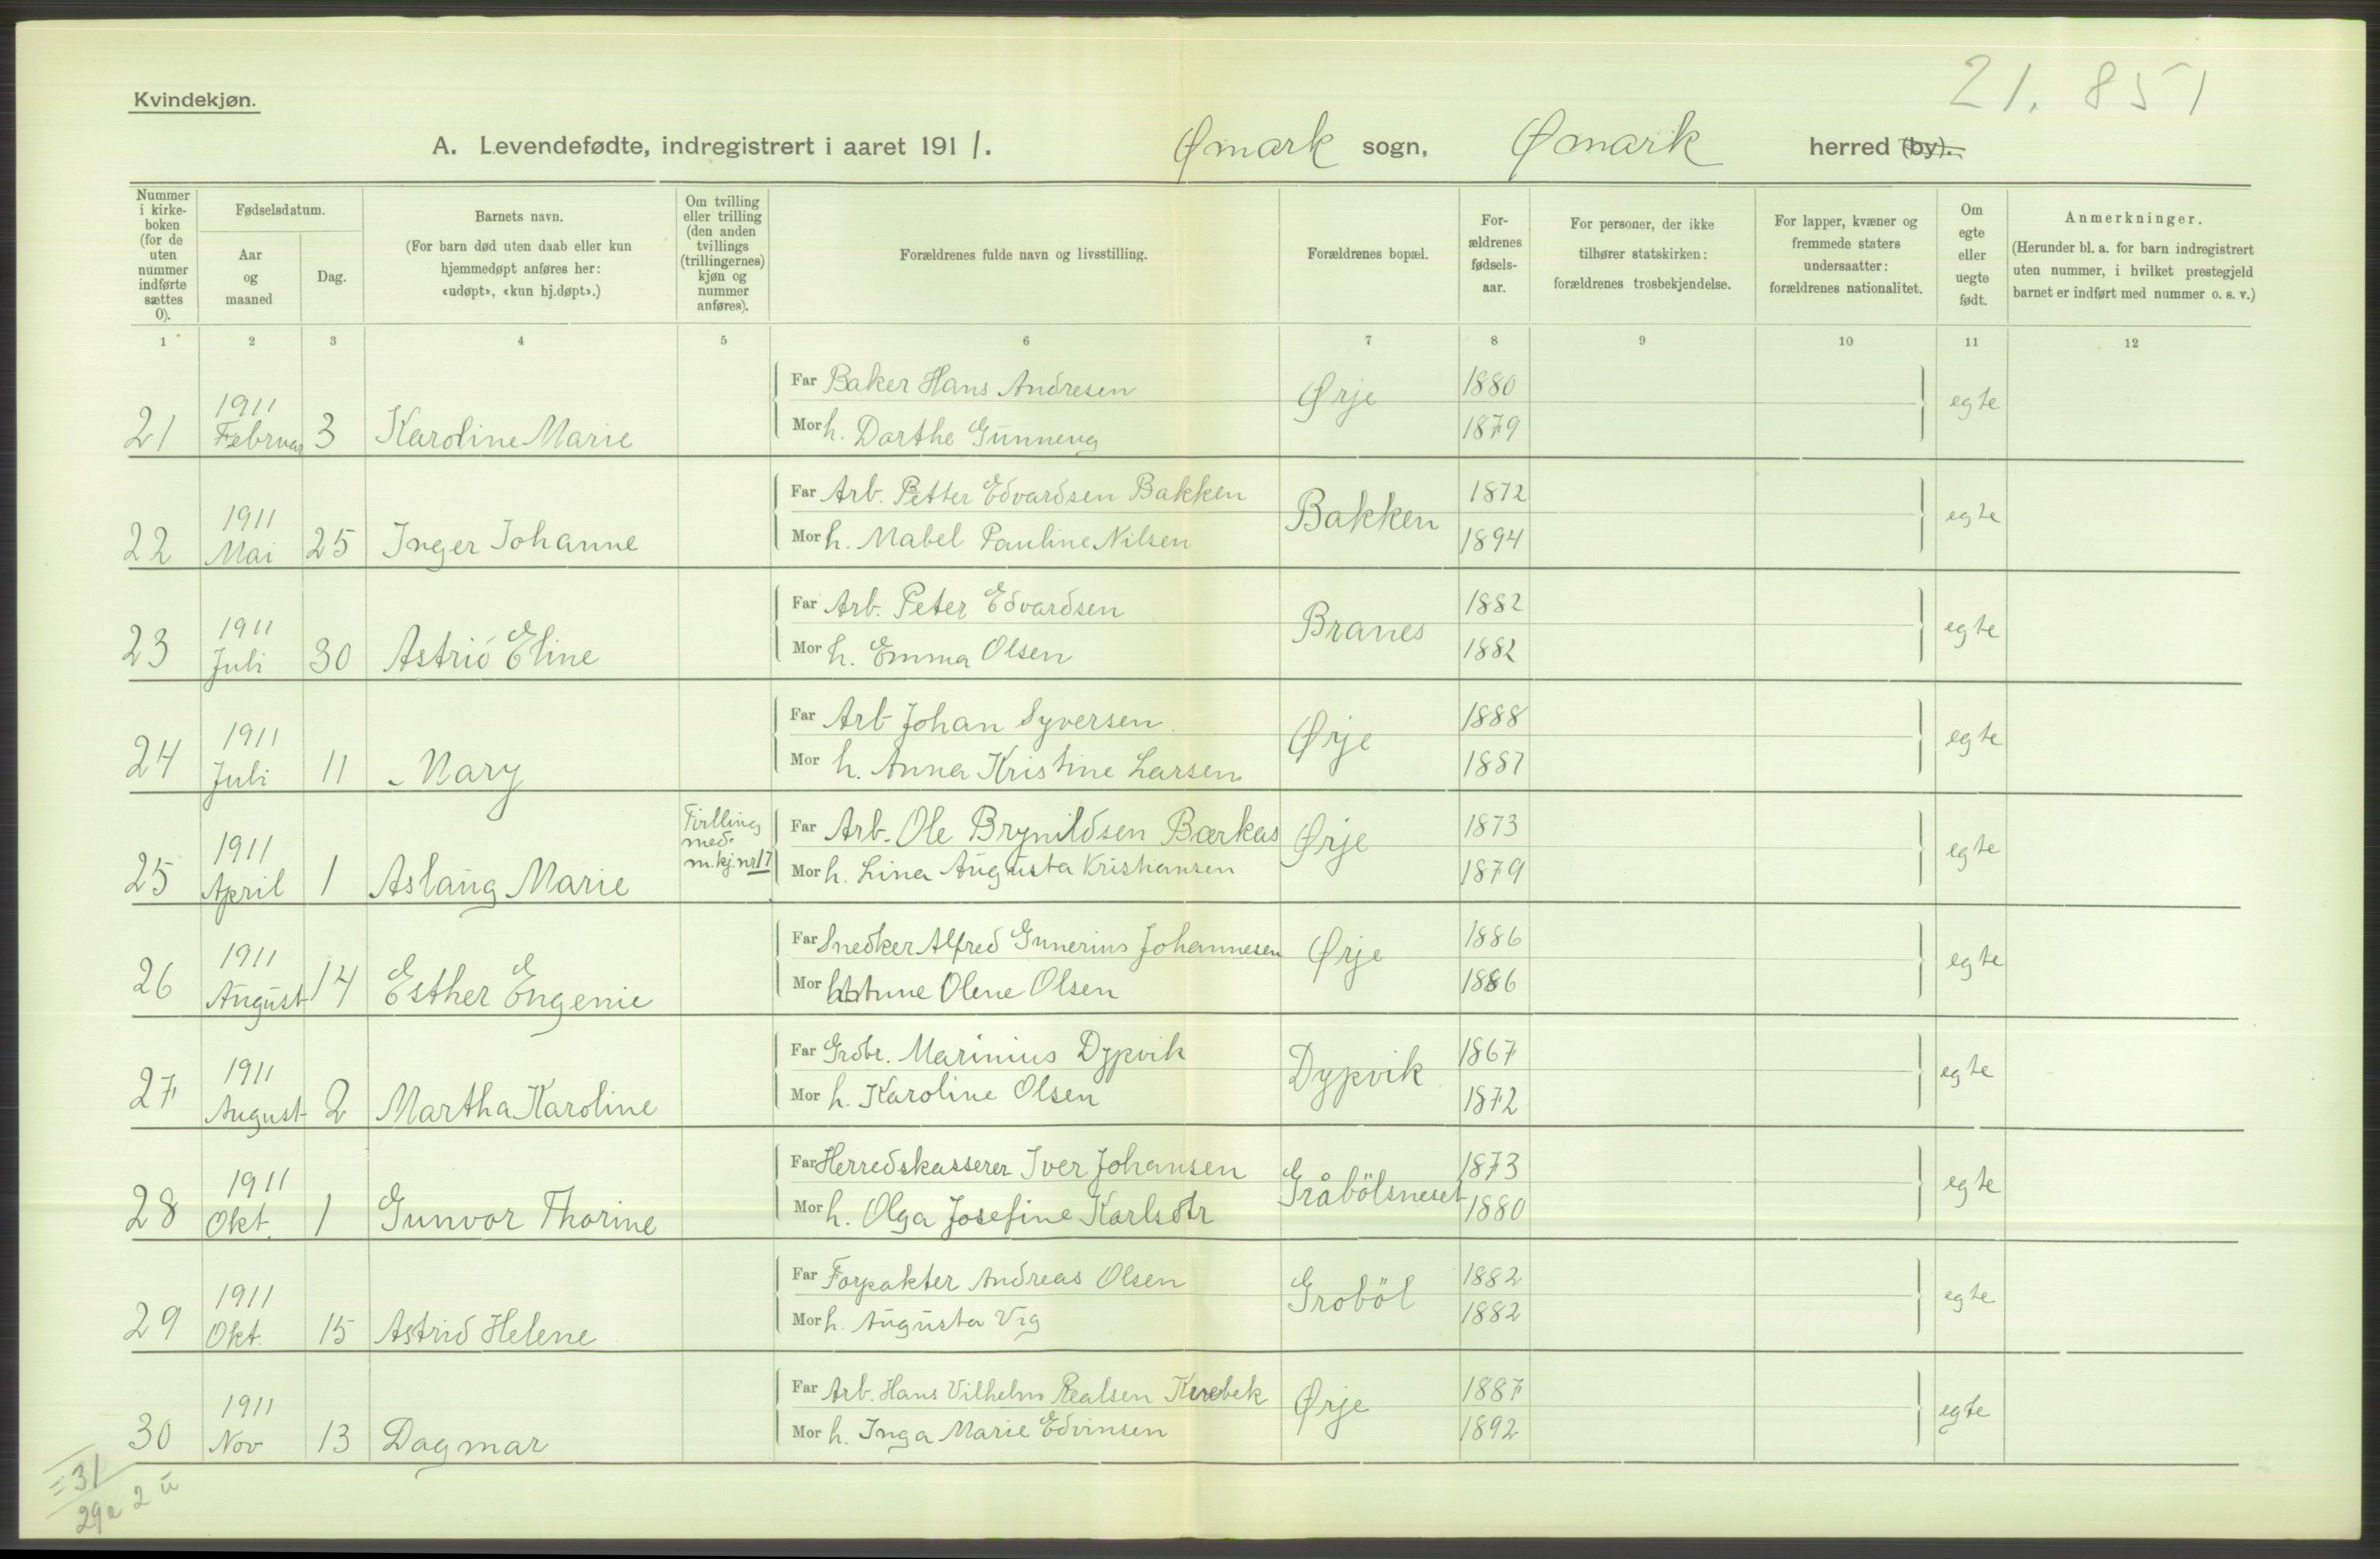 21. 851
Kvindekjøn.
A. Levendefødte, indregistrert i aaret 1911. Ømark sogn, Ømark herred (by).
Nummer i kirke-boken (for de uten nummer indførte sættes 0).
Fødselsdatum.
Aar og maaned
Dag.
Barnets navn.
(For barn død uten daab eller kun hjemmedøpt anføres her: «udøpt», «kun hj.døpt».)
Om tvilling eller trilling (den anden tvillings (trillingernes) kjøn og nummer anføres).
Forældrenes fulde navn og livsstilling.
Forældrenes bopæl.
For-ældrenes fødsels-aar.
For personer, der ikke tilhører statskirken: forældrenes trosbekjendelse.
For lapper, kvæner og fremmede staters undersaatter: forældrenes nationalitet.
Om egte eller uegte født.
Anmerkninger.
(Herunder bl. a. for barn indregistrert uten nummer, i hvilket prestegjeld barnet er indført med nummer o. s. v.)
1 2 3 4 5 6 7 8 9 10 11 12
21 1911 Februar 3 Karoline Marie
Far Baker Hans Andresen Ørje 1880 egte
Mor h. Dorthe Gunneng 1879
22 1911 Mai 25 Inger Johanne
Far Arb. Petter Edvardsen Bakken Bakken 1872 egte
Mor h. Mabel Pauline Nilsen 1894
23 1911 Juli 30 Astrid Eline
Far Arb. Peter Edvardsen Branes 1882 egte
Mor h. Emma Olsen 1882
24 1911 Juli 11 Mary
Far Arb Johan Syversen Ørje 1888 egte
Mor h. Anna Kristine Larsen 1887
25 1911 April 1 Aslaug Marie
med m.kj. nr 17
Far Arb. Ole Brynildsen Bærkas Ørje 1873 egte
Mor h. Lina Augusta Kristiansen 1879
26 1911 August 14 Esther Engenie
Far Snedker Alfred Gunerius Johannesen Ørje 1886 egte
Mor Olene Olsen 1886
27 1911 August 2 Martha Karoline
Far Grdbr. Marinius Dypvik Dypvik 1867 egte
Mor h. Karoline Olsen 1872
28 1911 Okt. 1 Gunvor Thorine
Far Herredskasserer Iver Johansen Gråbölsneset 1873 egte
Mor h. Olga Josefine Karlsdtr 1880
29 1911 Okt. 15 Astrid Helene
Far Forpakter Andreas Olsen Groböl 1882 egte
Mor h. Augusta Vig 1882
30 1911 Nov 13 Dagmar
Far Arb. Hans Vilhelm Realsen Ørje 1887 egte
Mor h. Inga Marie Edvinsen 1892
=31
29e 2 u